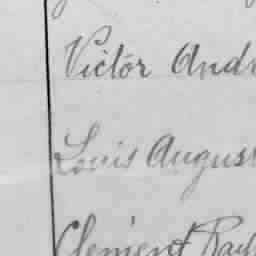 Victor And
Louis Augus
Clément Ray